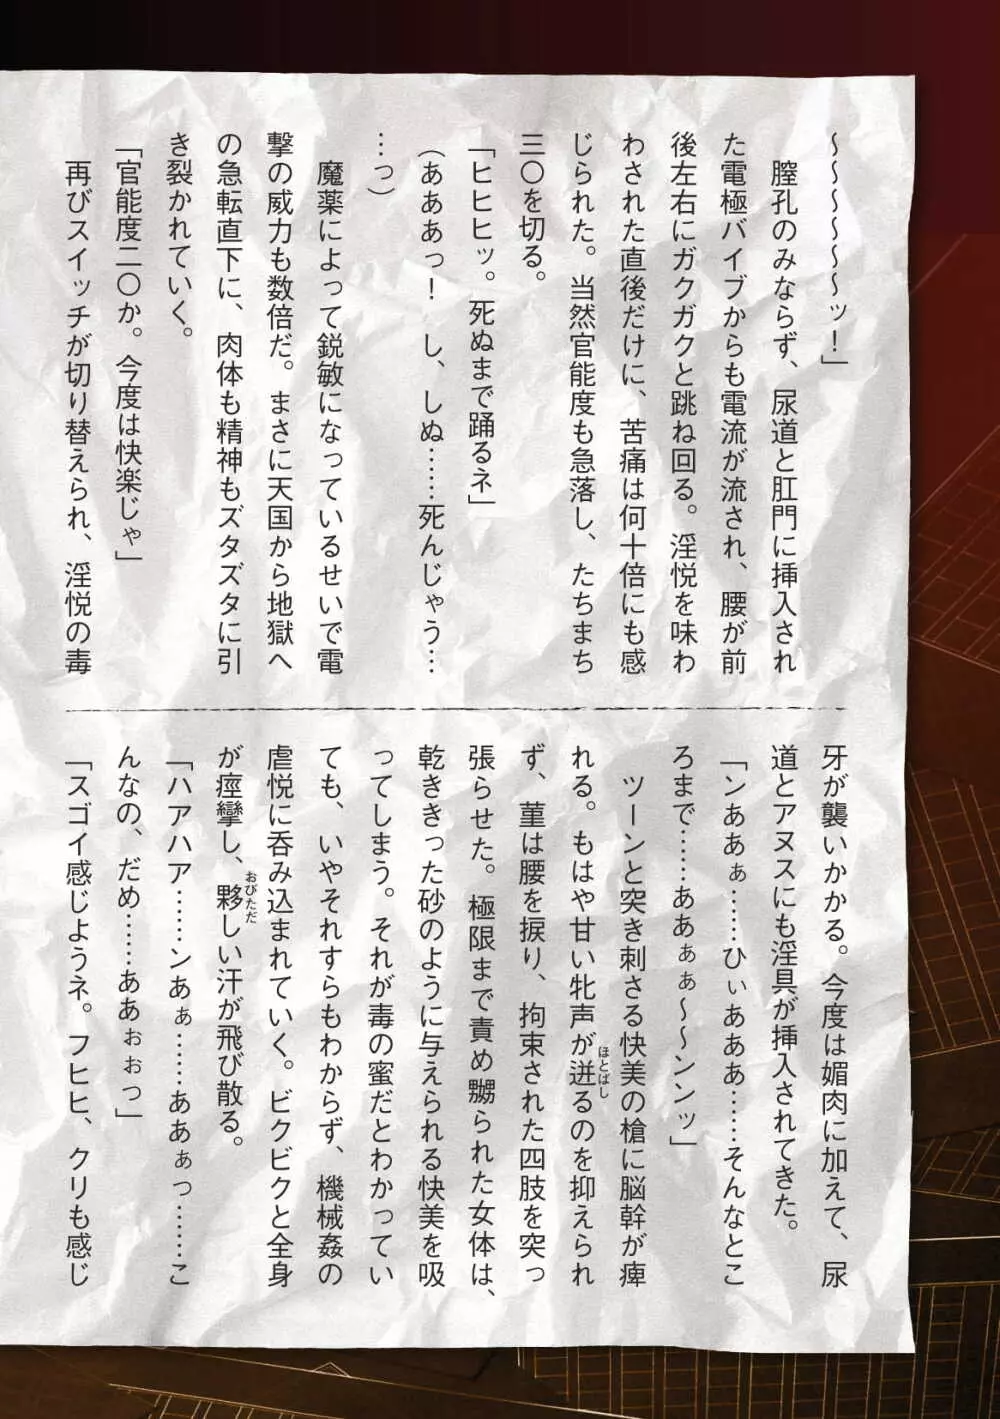 ～～～～～～ッ！」
　膣孔のみならず、尿道と肛門に挿入され
た電極バイブからも電流が流され、腰が前
後左右にガクガクと跳ね回る。淫悦を味わ
わされた直後だけに、苦痛は何十倍にも感
じられた。当然官能度も急落し、たちまち
三〇を切る。
「ヒヒヒッ。死ぬまで踊るネ」
（あああっ！　し、しぬ……死んじゃう…
…っ）
　魔薬によって鋭敏になっているせいで電
撃の威力も数倍だ。まさに天国から地獄へ
の急転直下に、肉体も精神もズタズタに引
き裂かれていく。
「官能度二〇か。今度は快楽じゃ」
　再びスイッチが切り替えられ、淫悦の毒
牙が襲いかかる。今度は媚肉に加えて、尿
道とアヌスにも淫具が挿入されてきた。
「ンああぁ……ひぃあああ……そんなとこ
ろまで……ああぁぁ～～ンンッ」
　ツーンと突き刺さる快美の槍に脳幹が痺
れる。もはや甘い牝声が迸るのを抑えられ
ほとばし
ず、菫は腰を捩り、拘束された四肢を突っ
張らせた。極限まで責め嬲られた女体は、
乾ききった砂のように与えられる快美を吸
ってしまう。それが毒の蜜だとわかってい
ても、いやそれすらもわからず、機械姦の
虐悦に呑み込まれていく。ビクビクと全身
が痙攣し、夥しい汗が飛び散る。
おびただ
「ハアハア……ンあぁ……ああぁっ……こ
んなの、だめ……ああぉぉっ」
「スゴイ感じようネ。フヒヒ、クリも感じ